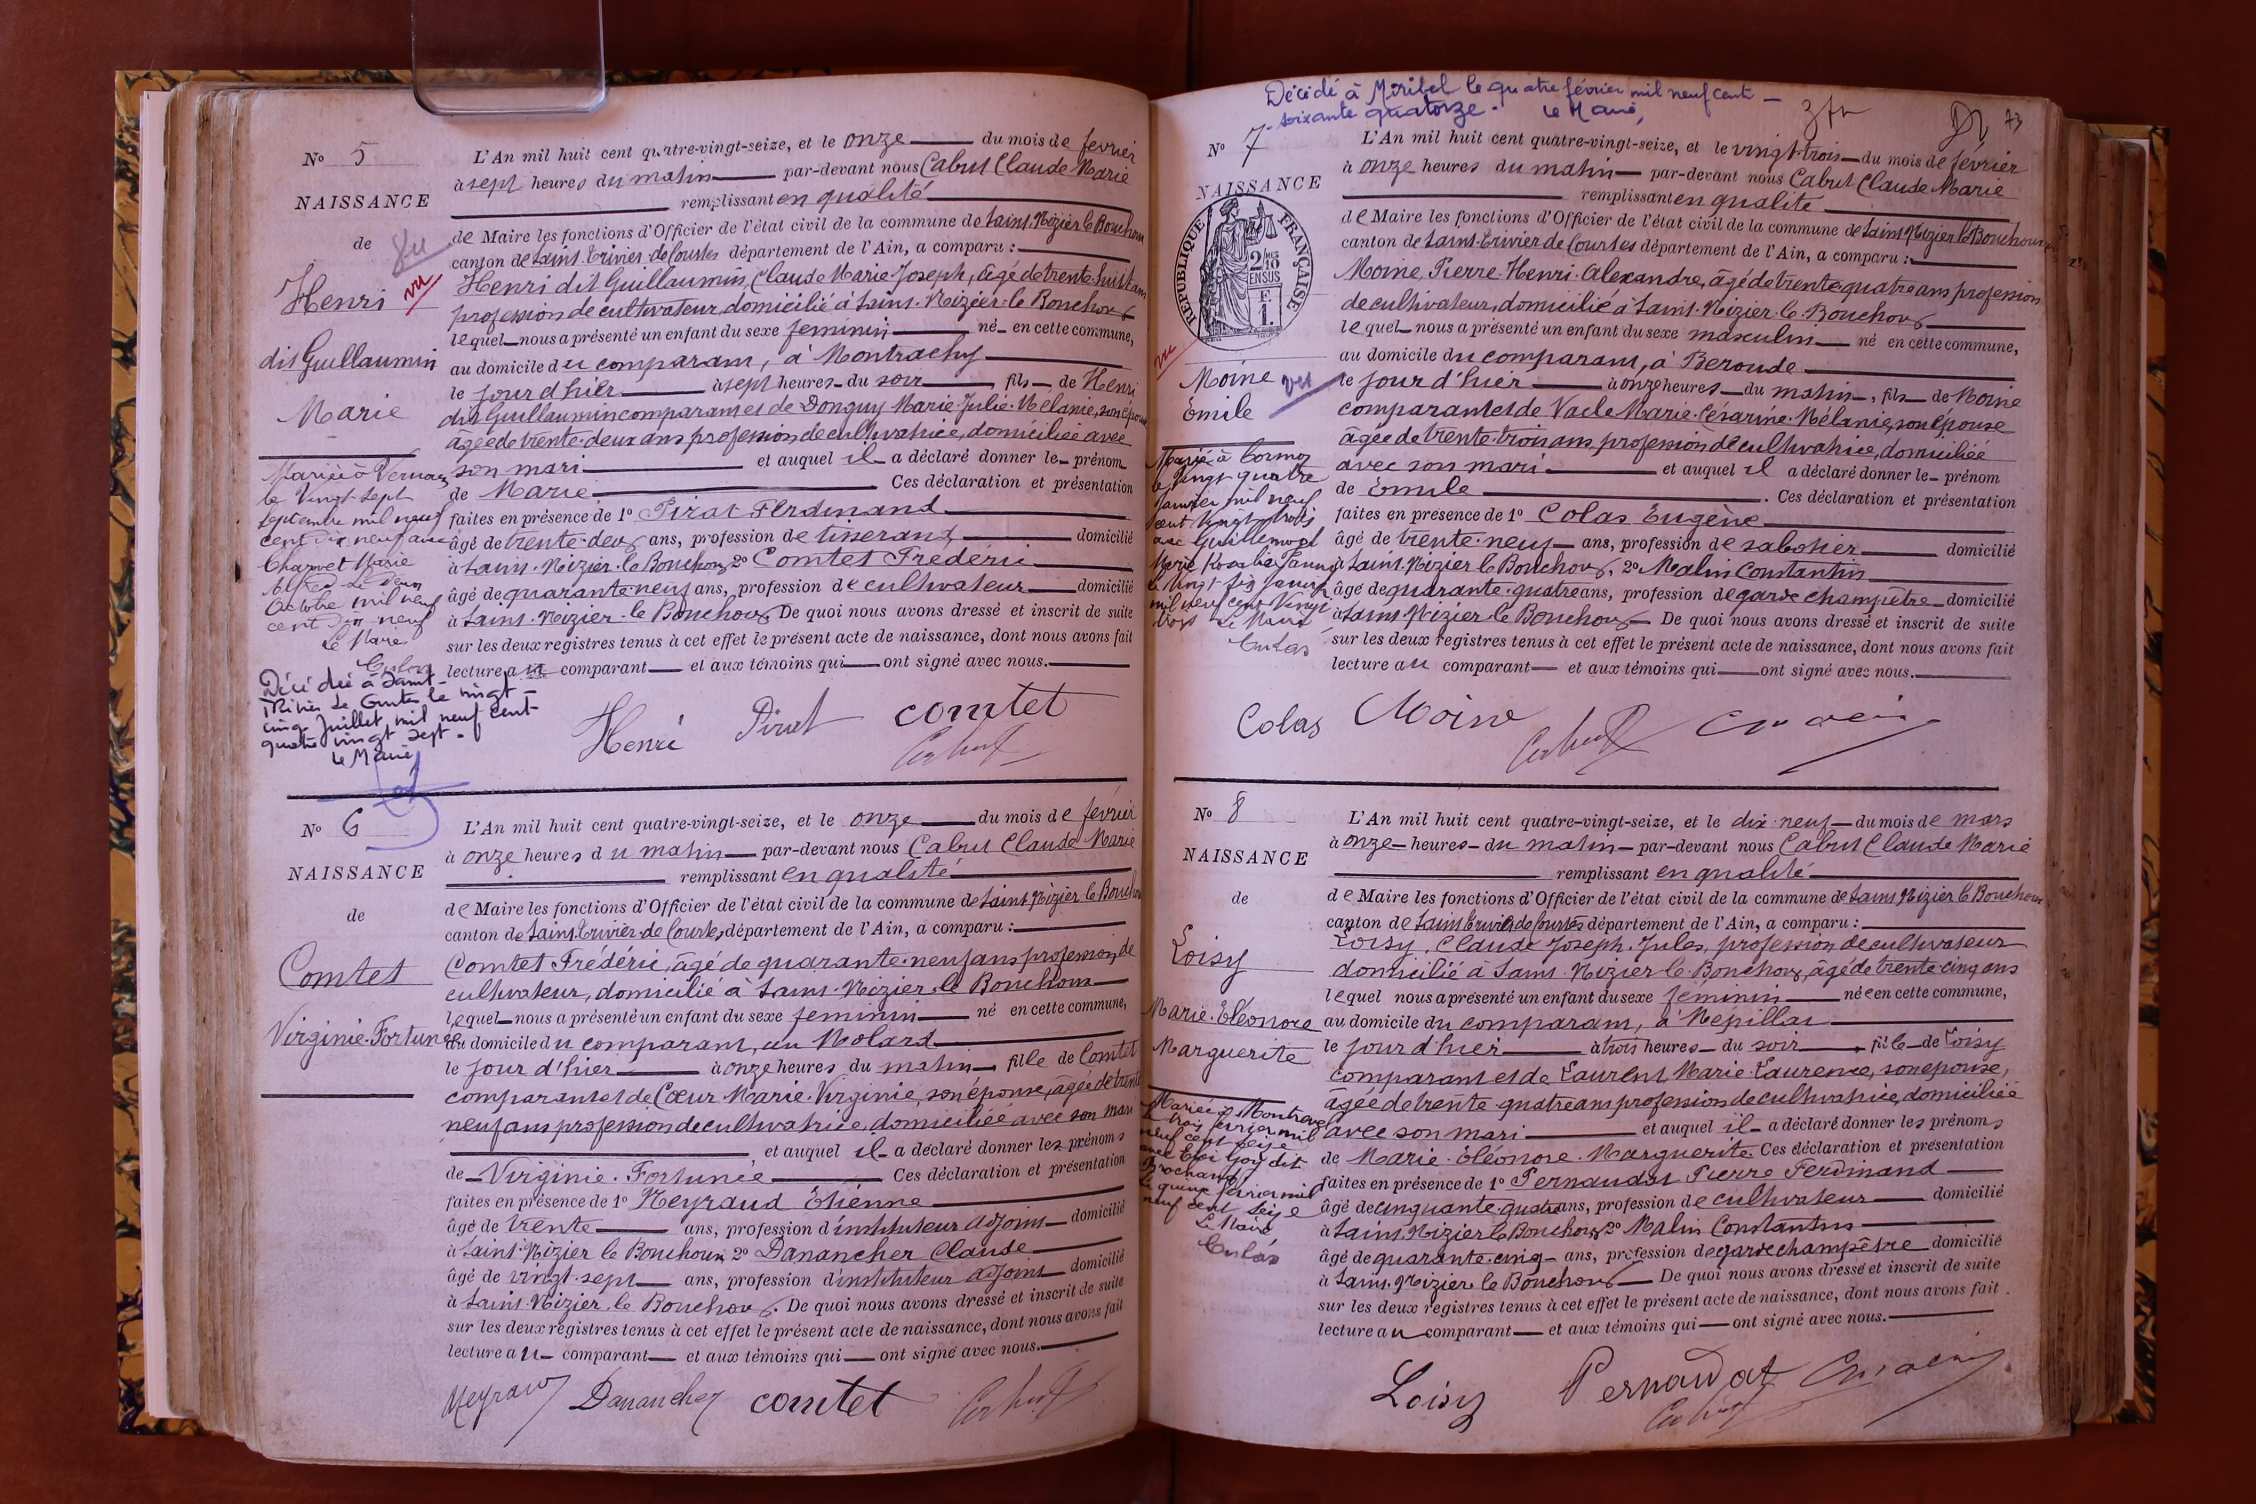 N° 5
NAISSANCE
de
Henri
vu
dit Guillaumin
Marie
Mariée à Vernoux
le vingt-sept
septembre mil neuf
cent dix neuf avec
Charvet Marie
Alfred Le deux
Octobre mil neuf
cent dix-neuf
Le Maire
Décédée à Saint-
Trivier de Courtes le vingt-
cinq Juillet mil neuf cent-
quatre vingt sept.
Le Maire,
L'An mil huit cent quatre-vingt-seize, et le onze du mois de février
à sept heures du matin par-devant nous Cabut Claude Marie
remplissant en qualité
de Maire les fonctions d'Officier de l'état civil de la commune de Saint-Nizier le Bouchoux
canton de Saint-Trivier de Courtes département de l'Ain, a comparu :
Henri dit Guillaumin, Claude Marie Joseph, âgé de trente huit ans
profession de cultivateur, domicilié à Saint-Nizier-le-Bouchoux
lequel nous a présenté un enfant du sexe féminin né en cette commune,
au domicile du comparant, à Montrachy
le jour d'hier à sept heures du soir, fils de Henri
dit Guillaumin comparant et de Donguy Marie-Julie-Mélanie, son épouse
âgée de trente-deux ans profession de cultivatrice, domiciliée avec
son mari et auquel il a déclaré donner le prénom
de Marie Ces déclaration et présentation
faites en présence de 1° Pirat Ferdinand
âgé de trente-deux ans, profession de tisserand domicilié
à Saint-Nizier-le Bouchoux 2° Comtet Frédéric
âgé de quarante-neuf ans, profession de cultivateur domicilié
à Saint-Nizier-le Bouchoux De quoi nous avons dressé et inscrit de suite
sur les deux registres tenus à cet effet le présent acte de naissance, dont nous avons fait
lecture au comparant et aux témoins qui ont signé avec nous.
Henri Pirat comtet
Cabut
N° 6
NAISSANCE
de
Comtet
Virginie-Fortunée
L'An mil huit cent quatre-vingt-seize, et le onze du mois de février
à onze heures du matin par-devant nous Cabut Claude Marie
remplissant en qualité
de Maire les fonctions d'Officier de l'état civil de la commune de Saint Nizier le Bouchoux
canton de Saint Trivier-de Courtes, département de l'Ain, a comparu :
Comtet Frédéric, âgé de quarante-neuf ans profession de
cultivateur, domicilié à Saint-Nizier-le Bouchoux
lequel nous a présenté un enfant du sexe féminin né en cette commune,
au domicile du comparant, au Molard
le jour d'hier à onze heures du matin, fille de Comtet
comparant et de Cœur Marie-Virginie, son épouse, âgée de trente
neuf ans profession de cultivatrice, domiciliée avec son mari
et auquel il a déclaré donner les prénoms
de Virginie-Fortunée Ces déclaration et présentation
faites en présence de 1° Meyraud Etienne
âgé de trente ans, profession d'instituteur adjoint domicilié
à Saint-Nizier le Bouchoux 2° Danancher Claude
âgé de vingt-sept ans, profession d'instituteur adjoint domicilié
à Saint-Nizier-le Bouchoux. De quoi nous avons dressé et inscrit de suite
sur les deux registres tenus à cet effet le présent acte de naissance, dont nous avons fait
lecture au comparant et aux témoins qui ont signé avec nous.
Meyraud Danancher comtet Cabut
Décédé à Miribel le quatre février mil neuf cent-
soixante quatorze. Le Maire,
73
N° 7
NAISSANCE
RÉPUBLIQUE FRANÇAISE
2/10 EN SUS
Moine
vu
Émile
Marié à Cormoz
le vingt quatre
janvier mil neuf
cent vingt trois
avec Guillemot
Marie Rosalie Fanny
le vingt six janvier
mil neuf cent vingt
trois Le Maire
L'An mil huit cent quatre-vingt-seize, et le vingt-trois du mois de février
à onze heures du matin par-devant nous Cabut Claude Marie
remplissant en qualité
de Maire les fonctions d'Officier de l'état civil de la commune de Saint Nizier le Bouchoux
canton de Saint-Trivier de Courtes département de l'Ain, a comparu :
Moine Pierre-Henri-Alexandre, âgé de trente-quatre ans profession
de cultivateur, domicilié à Saint-Nizier-le-Bouchoux
lequel nous a présenté un enfant du sexe masculin né en cette commune,
au domicile du comparant, à Beroude
le jour d'hier à onze heures du matin, fils de Moine
comparant et de Vacle Marie-Césarine-Mélanie, son épouse
âgée de trente-trois ans, profession de cultivatrice, domiciliée
avec son mari et auquel il a déclaré donner le prénom
de Émile. Ces déclaration et présentation
faites en présence de 1° Colas Eugène
âgé de trente-neuf ans, profession de sabotier domicilié
à Saint-Nizier le Bouchoux, 2° Malin Constantin
âgé de quarante-quatre ans, profession de garde champêtre domicilié
à Saint-Nizier le Bouchoux De quoi nous avons dressé et inscrit de suite
sur les deux registres tenus à cet effet le présent acte de naissance, dont nous avons fait
lecture au comparant et aux témoins qui ont signé avec nous.
Colas Moine Cabut
N° 8
NAISSANCE
de
Loisy
Marie-Éléonore
Marguerite
Mariée à Montrevel
le trois février mil
neuf cent seize
Brochand
le quinze février mil
neuf cent seize
Le Maire
L'An mil huit cent quatre-vingt-seize, et le dix-neuf du mois de mars
à onze heures du matin par-devant nous Cabut Claude Marie
remplissant en qualité
de Maire les fonctions d'Officier de l'état civil de la commune de Saint Nizier le Bouchoux
canton de Saint Trivier de Courtes département de l'Ain, a comparu :
Loisy, Claude Joseph-Jules, profession de cultivateur
domicilié à Saint-Nizier-le-Bouchoux, âgé de trente cinq ans
lequel nous a présenté un enfant du sexe féminin née en cette commune,
au domicile du comparant, à Népillat
le jour d'hier à trois heures du soir, fille de Loisy
comparant et de Laurent Marie-Laurence, son épouse,
âgée de trente-quatre ans profession de cultivatrice, domiciliée
avec son mari et auquel il a déclaré donner les prénoms
de Marie-Éléonore-Marguerite Ces déclaration et présentation
faites en présence de 1° Pernaudat Pierre Ferdinand
âgé de cinquante-quatre ans, profession de cultivateur domicilié
à Saint-Nizier le Bouchoux 2° Malin Constantin
âgé de quarante-cinq ans, profession de garde champêtre domicilié
à Saint-Nizier le Bouchoux De quoi nous avons dressé et inscrit de suite
sur les deux registres tenus à cet effet le présent acte de naissance, dont nous avons fait
lecture au comparant et aux témoins qui ont signé avec nous.
Loisy Pernaudat
Cabut